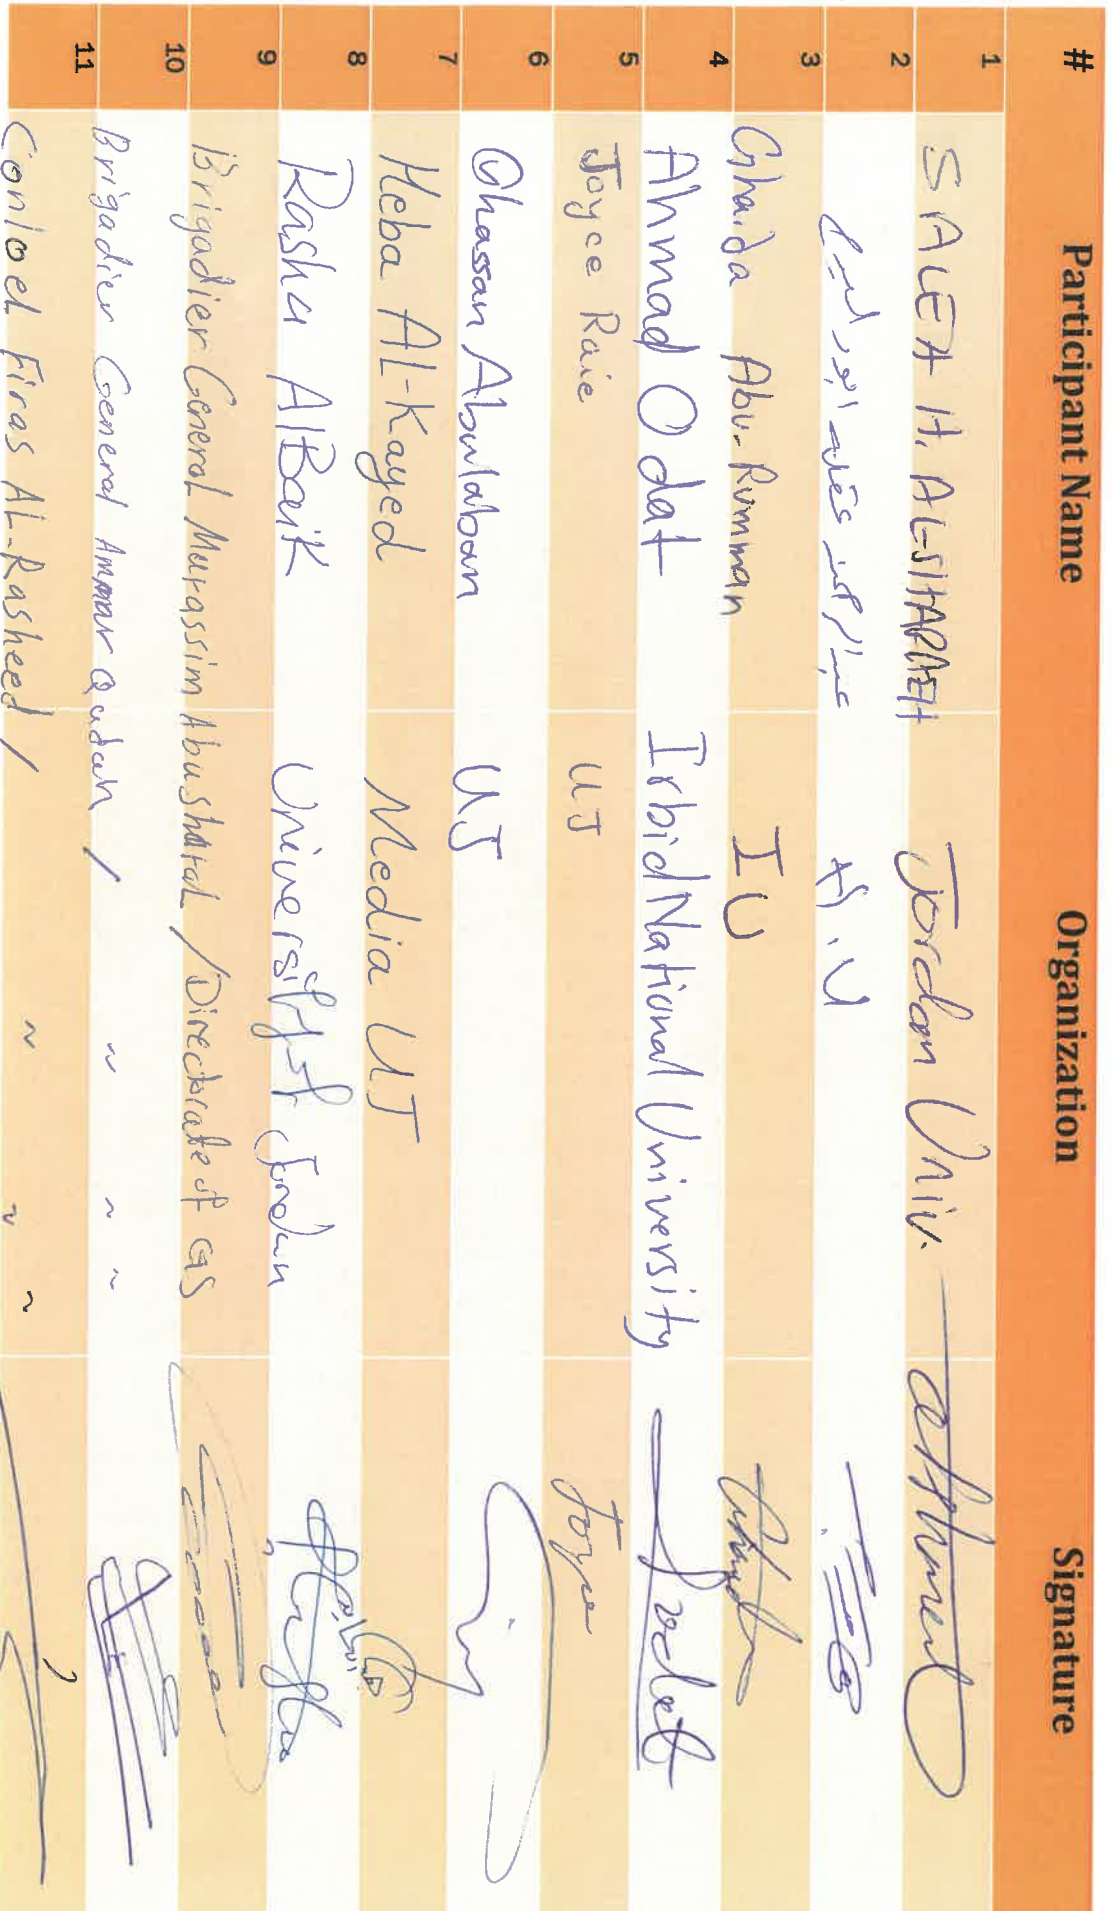 # Participant Name Organization Signature
1 SALEH H. AL-SHARAEH Jordan Univ.
2 H.U
3 Ghaida Abu-Rumman IU
4 Ahmad Odat Irbid National University Jodat
5 Joyce Raie UJ Joyce
6 Ghassan Abulaban UJ
7 Heba AL-Kayed Media UJ
8 Rasha AlBaik University of Jordan
9 Brigadier General Murassim Abushatal / Directorate of GIS
10 Brigadier General Ammar Qudah / ~ ~ ~
11 Conloel Firas AL-Rasheed / ~ ~ ~